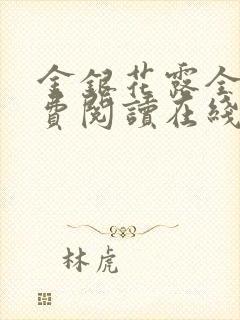 金銀花露全
費閱讀在綫
林虎